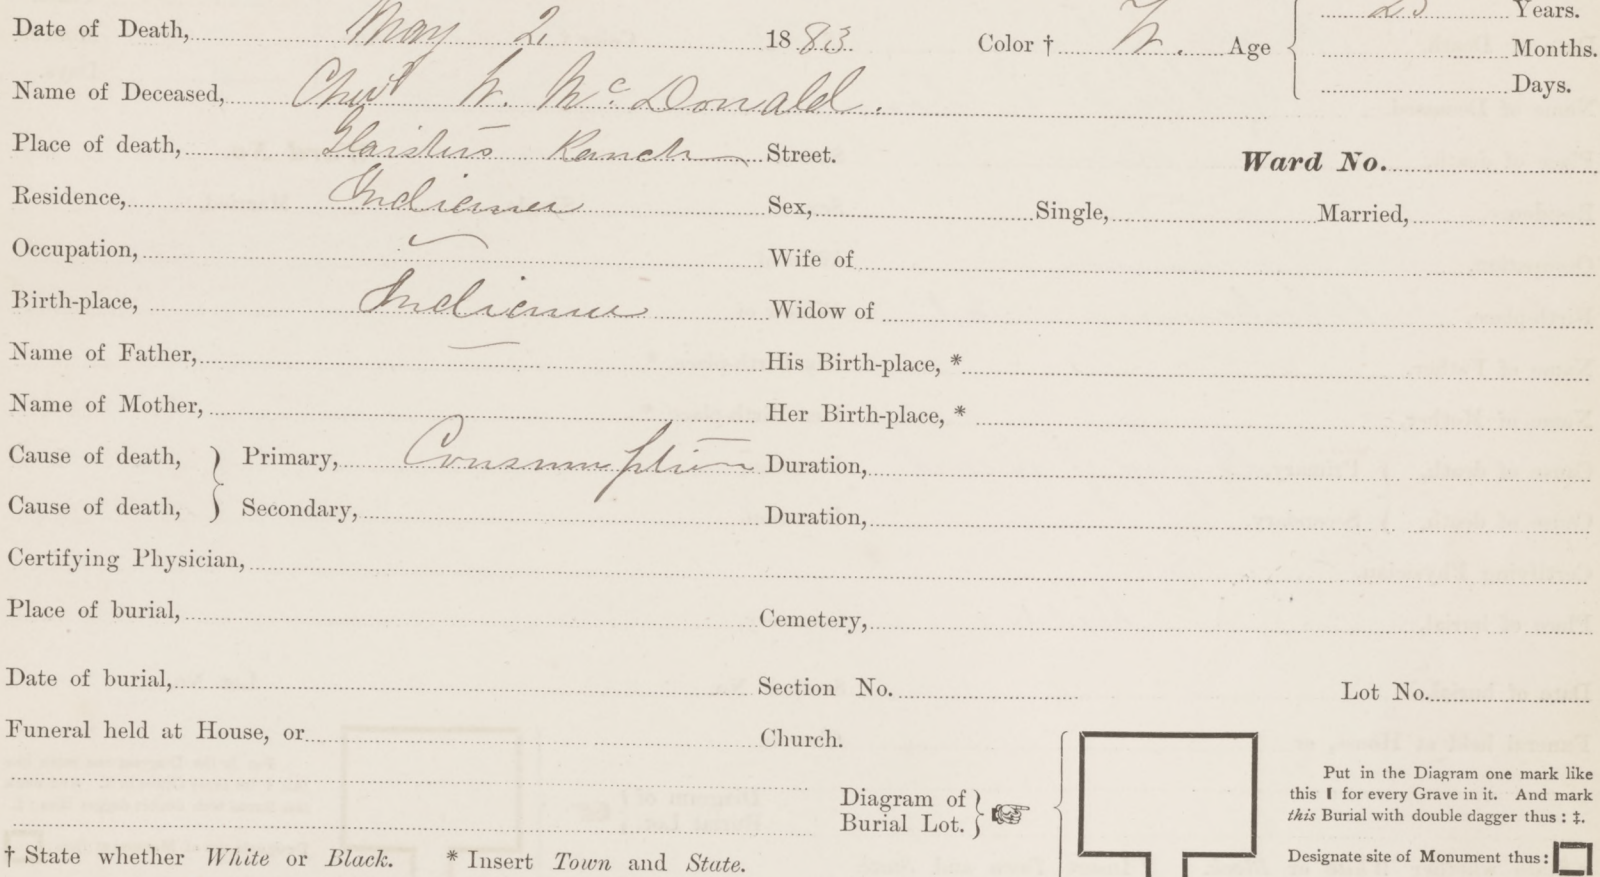 Date of Death, May 2 1883. Color † W. Age 23 Years.
Months.
Name of Deceased, W. McDonald.
Days.
Place of death, Ranch Street. Ward No.
Residence, Indiana Sex, Single, Married,
Occupation, Wife of
Birth-place, Indiana Widow of
Name of Father, His Birth-place, *
Name of Mother, Her Birth-place, *
Cause of death, } Primary, Consumption Duration,
Cause of death, } Secondary, Duration,
Certifying Physician,
Place of burial, Cemetery,
Date of burial, Section No. Lot No.
Funeral held at House, or Church.
Diagram of
Burial Lot. }
Put in the Diagram one mark like
this I for every Grave in it. And mark
this Burial with double dagger thus : ‡.
Designate site of Monument thus :
† State whether White or Black. * Insert Town and State.